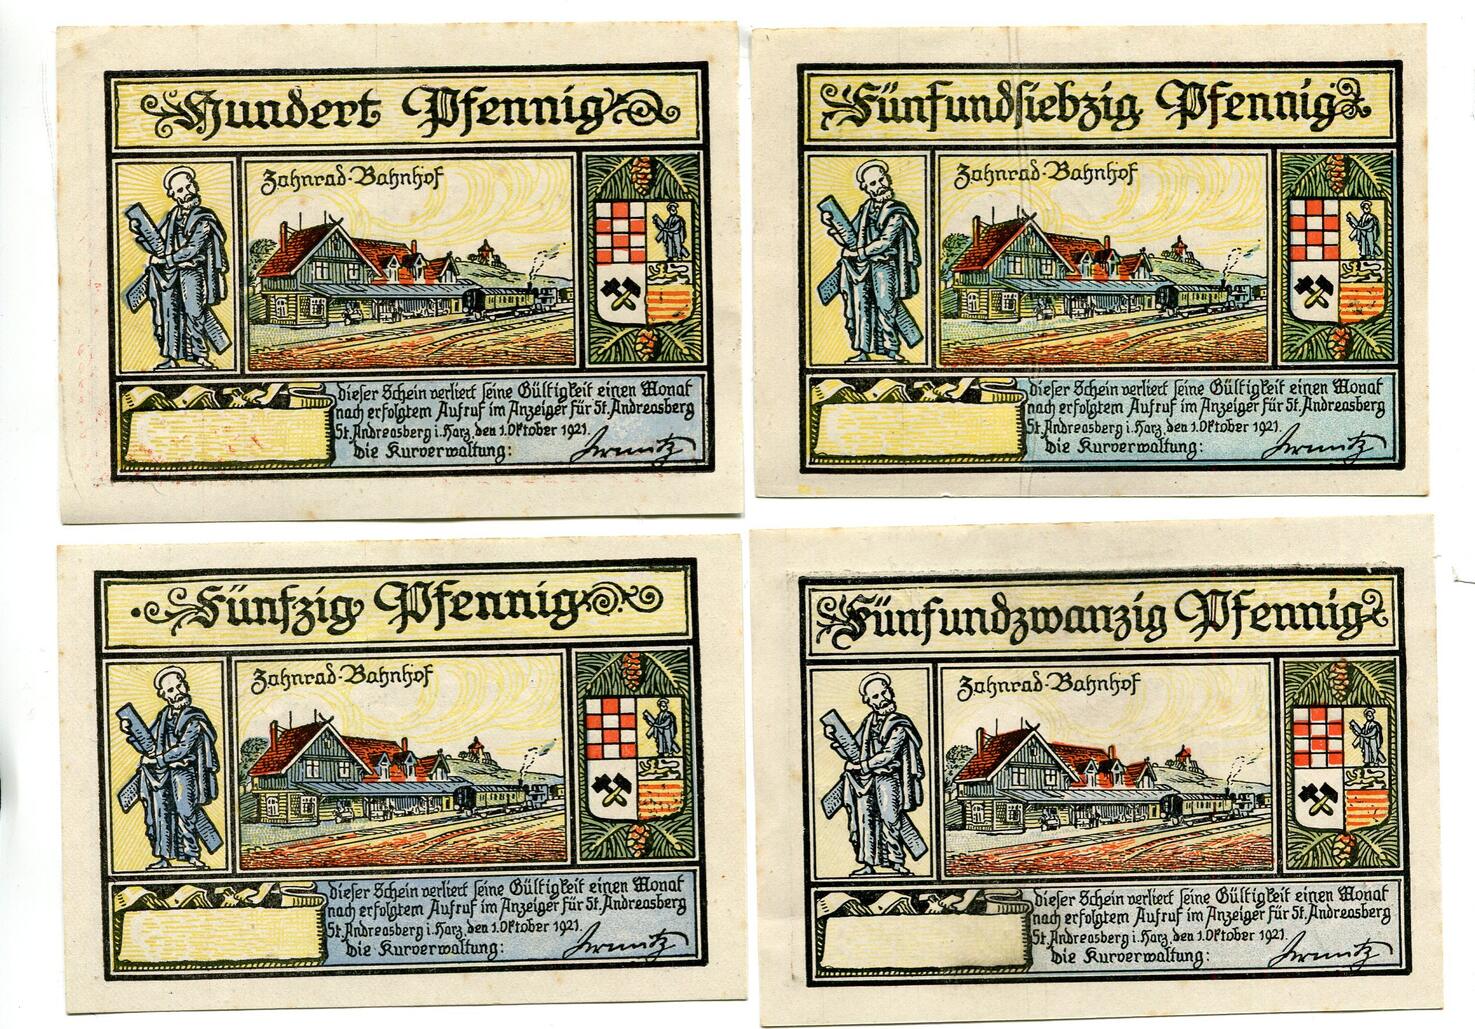 Hundert Pfennig
Zahnrad-Bahnhof
Dieser Schein verliert seine Gültigkeit einen Monat
nach erfolgtem Aufruf im Anzeiger für St. Andreasberg
St. Andreasberg i. Harz, den 1. Oktober 1921.
Die Kurverwaltung:
Fünfundsiebzig Pfennig
Zahnrad-Bahnhof
Dieser Schein verliert seine Gültigkeit einen Monat
nach erfolgtem Aufruf im Anzeiger für St. Andreasberg
St. Andreasberg i. Harz, den 1. Oktober 1921.
Die Kurverwaltung:
Fünfzig Pfennig
Zahnrad-Bahnhof
Dieser Schein verliert seine Gültigkeit einen Monat
nach erfolgtem Aufruf im Anzeiger für St. Andreasberg
St. Andreasberg i. Harz, den 1. Oktober 1921.
Die Kurverwaltung:
Fünfundzwanzig Pfennig
Zahnrad-Bahnhof
Dieser Schein verliert seine Gültigkeit einen Monat
nach erfolgtem Aufruf im Anzeiger für St. Andreasberg
St. Andreasberg i. Harz, den 1. Oktober 1921.
Die Kurverwaltung: